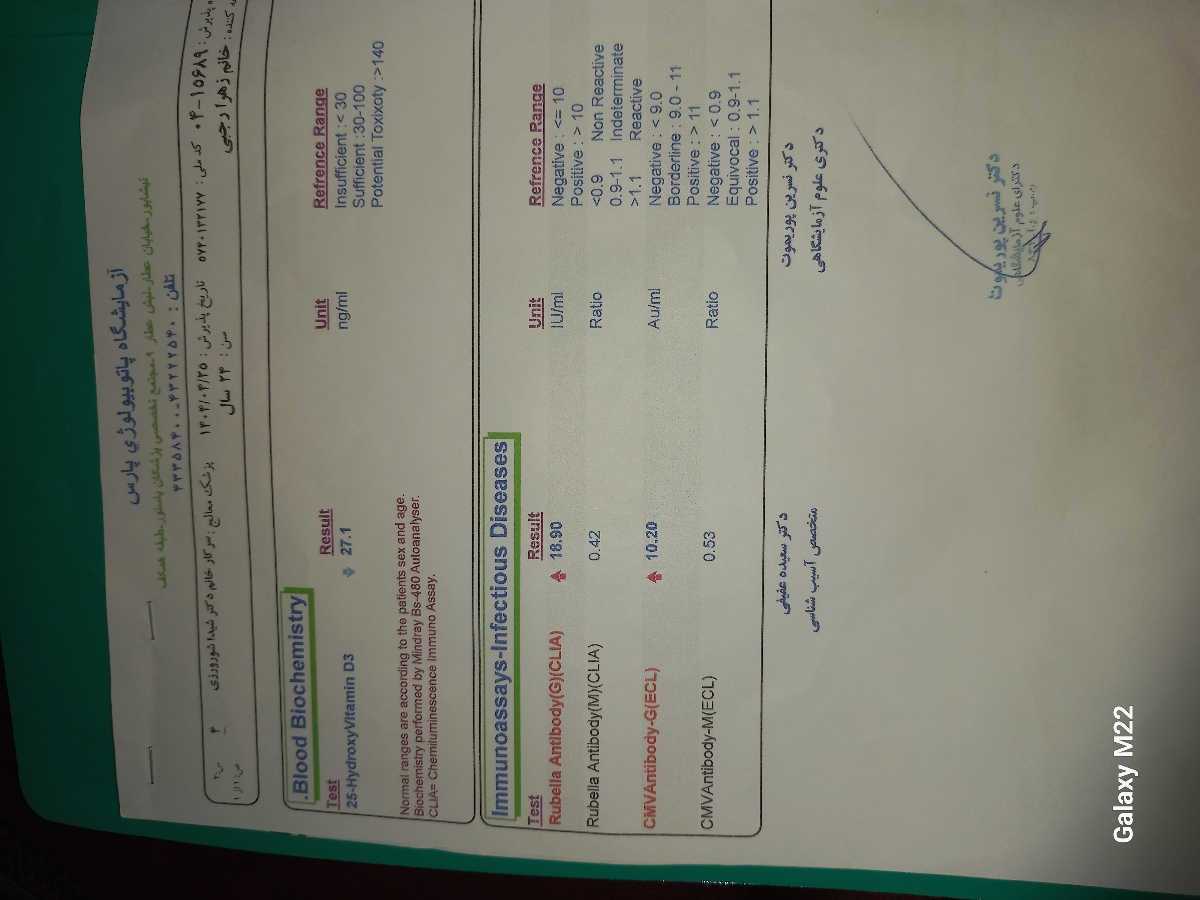 آزمایشگاه پاتوبیولوژی پارس
نیشابور-خیابان عطار-نبش عطار ۹-مجتمع تخصصی پزشکان پاستور-طبقه همکف
تلفن : ۴۳۲۲۲۵۴۰-۴۳۳۵۸۴۰۰
پذیرش : ۱۵۶۸۹-۰۴ کد ملی : ۵۷۴۰۱۳۲۱۷۷ تاریخ پذیرش : ۱۴۰۴/۰۴/۲۵ پزشک معالج : سرکار خانم دکتر شیدا شورورزی
کننده : خانم زهرا رجبی سن : ۲۴ سال
.Blood Biochemistry
Test Result Unit Refrence Range
25-HydroxyVitamin D3 27.1 ng/ml Insufficient :< 30
Sufficient :30-100
Potential Toxixoty :>140
Normal ranges are according to the patients sex and age.
Biochemistry performed by Mindray Bs-480 Autoanalyser.
CLIA= Chemiluminescence Immuno Assay.
Immunoassays-Infectious Diseases
Test Result Unit Refrence Range
Rubella Antibody(G)(CLIA) 18.90 IU/ml Negative : <= 10
Positive : > 10
Rubella Antibody(M)(CLIA) 0.42 Ratio <0.9 Non Reactive
0.9-1.1 Indeterminate
>1.1 Reactive
CMVAntibody-G(ECL) 10.20 Au/ml Negative : < 9.0
Borderline : 9.0 - 11
Positive : > 11
CMVAntibody-M(ECL) 0.53 Ratio Negative : < 0.9
Equivocal : 0.9-1.1
Positive : > 1.1
دکتر نسرین پوریموت دکتر سعیده عفیفی
دکتری علوم آزمایشگاهی متخصص آسیب شناسی
دکتر نسرین پوریموت
دکترای علوم آزمایشگاهی
Galaxy M22